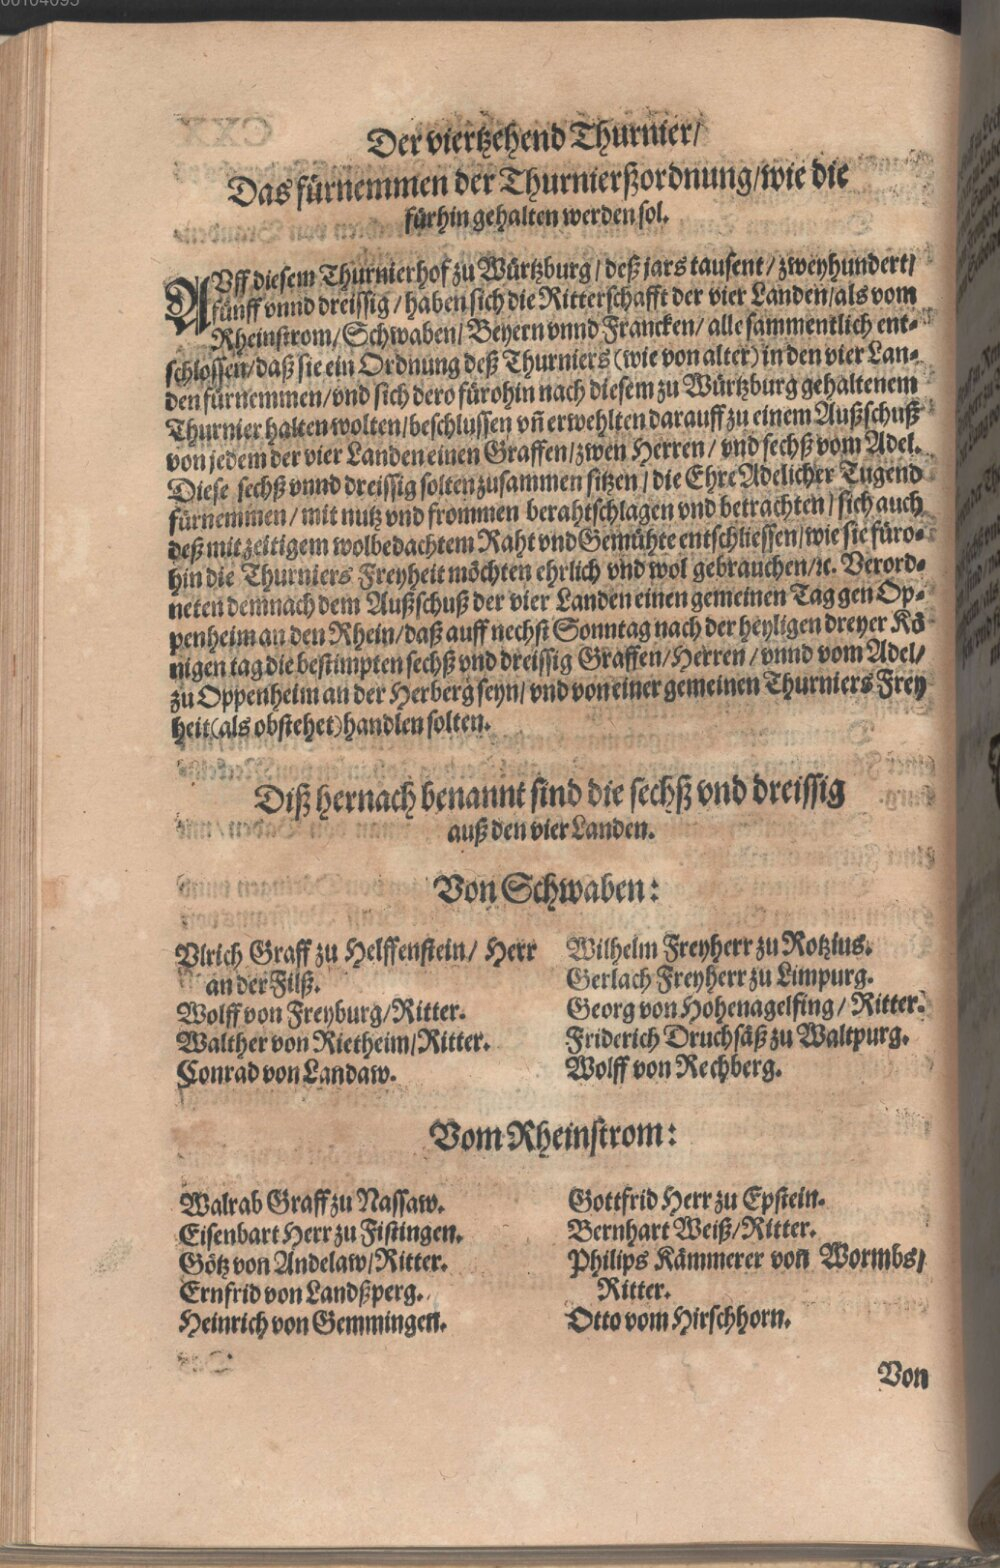 Der viertzehend Thurnier/
Das fürnemmen der Thurnierßordnung/wie die
fürhin gehalten werden sol.
AVff diesem Thurnierhof zu Würtzburg/ deß jars tausent/ zweyhundert/
fünff vnnd dreissig/ haben sich die Ritterschafft der vier Landen/als vom
Rheinstrom/ Schwaben/ Beyern vnnd Francken/ alle sammentlich ent-
schlossen/daß sie ein Ordnung deß Thurniers (wie von alter) in den vier Lan-
den fürnemmen/vnd sich dero fürohin nach diesem zu Würtzburg gehaltenem
Thurnier halten wolten/beschlussen vñ erwehlten darauff zu einem Außschuß
von jedem der vier Landen einen Graffen/zwen Herren/ vnd sechß vom Adel.
Diese sechß vnnd dreissig solten zusammen sitzen/ die Ehre Adelicher Tugend
fürnemmen/ mit nutz vnd frommen berahtschlagen vnd betrachten/ sich auch
deß mit zeitigem wolbedachtem Raht vnd Gemühte entschliessen/wie sie füro-
hin die Thurniers Freyheit möchten ehrlich vnd wol gebrauchen/ꝛc. Verord-
neten demnach dem Außschuß der vier Landen einen gemeinen Tag gen Op-
penheim an den Rhein/daß auff nechst Sonntag nach der heyligen dreyer Kö
nigen tag die bestimpten sechß vnd dreissig Graffen/Herren/ vnnd vom Adel/
zu Oppenheim an der Herberg seyn/ vnd von einer gemeinen Thurniers Frey
heit (als obstehet) handlen solten.
Diß hernach benannt sind die sechß vnd dreissig
auß den vier Landen.
Von Schwaben:
Vlrich Graff zu Helffenstein/ Herr
an der Filß.
Wolff von Freyburg/Ritter.
Walther von Rietheim/Ritter.
Conrad von Landaw.
Wilhelm Freyherr zu Rotzius.
Gerlach Freyherr zu Limpurg.
Georg von Hohenagelfing/ Ritter.
Friderich Druchsäß zu Waltpurg.
Wolff von Rechberg.
Vom Rheinstrom:
Walrab Graff zu Nassaw.
Eisenbart Herr zu Fistingen.
Götz von Andelaw/Ritter.
Ernfrid von Landßperg.
Heinrich von Gemmingen.
Gottfrid Herr zu Epstein.
Bernhart Weiß/Ritter.
Philips Kämmerer von Wormbs/
Ritter.
Otto vom Hirschhorn.
Von